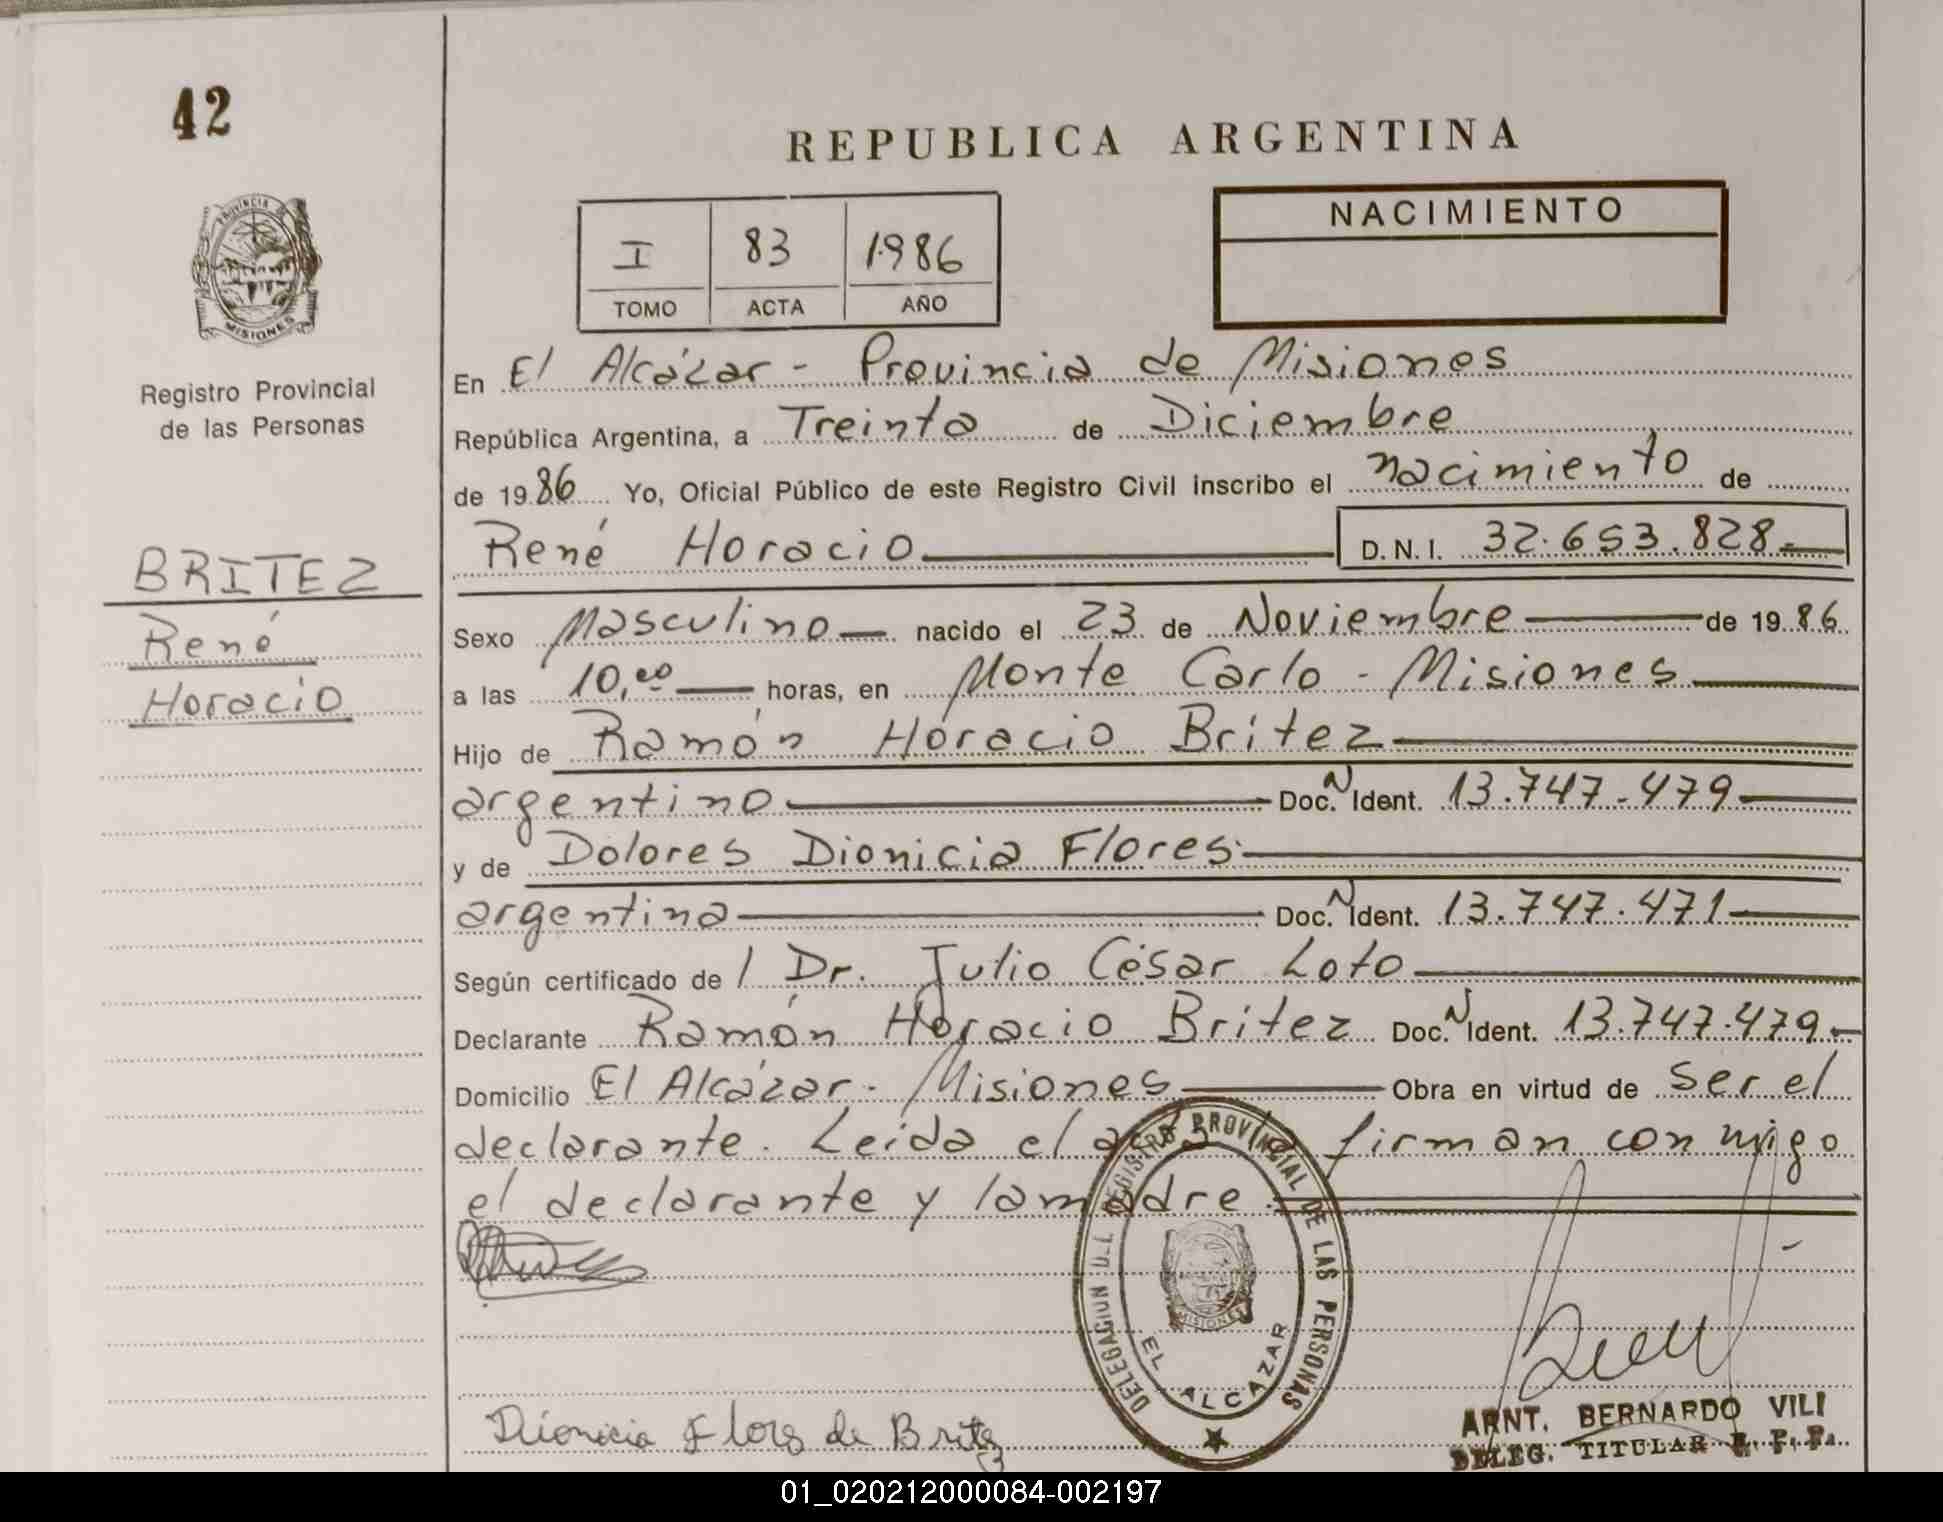 42
REPUBLICA ARGENTINA
PROVINCIA DE
MISIONES
I 83 1986
TOMO ACTA AÑO
NACIMIENTO
Registro Provincial
de las Personas
BRITEZ
René
Horacio
En El Alcázar - Provincia de Misiones
República Argentina, a Treinta de Diciembre
de 1986 Yo, Oficial Público de este Registro Civil inscribo el nacimiento de
René Horacio D.N.I. 32.653.828.-
Sexo Masculino nacido el 23 de Noviembre de 1986
a las 10,00 horas, en Monte Carlo - Misiones
Hijo de Ramón Horacio Britez
argentino Doc. N Ident. 13.747.479
y de Dolores Dionicia Flores
argentina Doc. N Ident. 13.747.471
Según certificado de / Dr. Julio César Loto
Declarante Ramón Horacio Britez Doc. N Ident. 13.747.479.-
Domicilio El Alcázar - Misiones Obra en virtud de ser el
declarante. Leída el acta, la firman conmigo
el declarante y la madre.
DELEGACION DEL REGISTRO PROVINCIAL DE LAS PERSONAS
MISIONES
EL ALCAZAR
Dionicia Flors de Britez
ARNT. BERNARDO VILI
DELEG. TITULAR R. P. P.
01_020212000084-002197